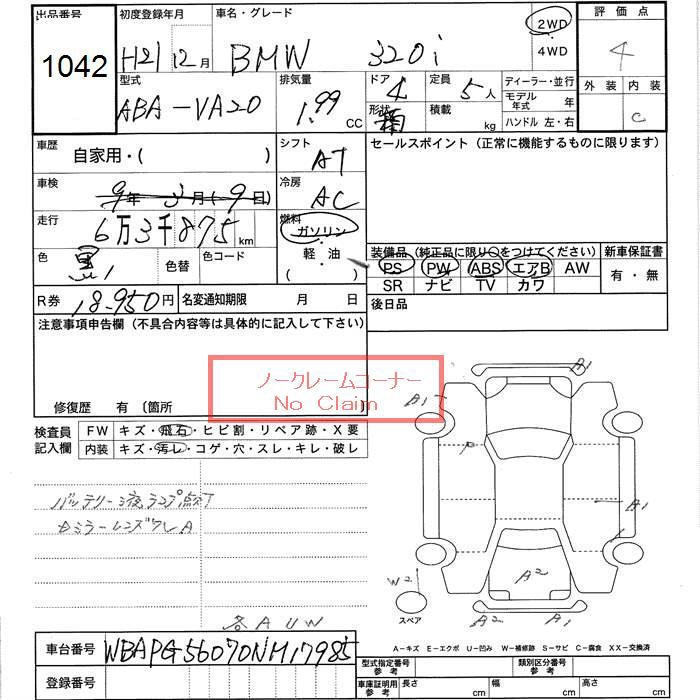 出品番号 初度登録年月 車名・グレード 評価点
1042 H21 12月 BMW 320i 2WD 4WD 4
型式 排気量 ドア 定員 ディーラー・並行 外装 内装
ABA-VA20 1.99 CC 4 5人 モデル年式 年 C
形状 積載 kg ハンドル 左・右
車歴 自家用・( ) シフト AT セールスポイント（正常に機能するものに限ります）
車検 9年 3月(9日) 冷房 AC
走行 6万3千875km 燃料 ガソリン
軽・油
( )
色 黒 色替 色コード
装備品（純正品に限り○をつけてください） 新車保証書
PS PW ABS エアB AW 有・無
SR ナビ TV カワ
R券 18,950円 名変通知期限 月 日 後日品
注意事項申告欄（不具合内容等は具体的に記入して下さい）
ノークレームコーナー
No Claim
修復歴 有 〔箇所
検査員記入欄 FW キズ・飛石・ヒビ割・リペア跡・X要
内装 キズ・汚レ・コゲ・穴・スレ・キレ・破レ
バッテリー液ランプ点灯
ミラーレンズワレA
各AUW
A1
A1
P
A1
W2
A2
A2
A1
スペア
A－キズ E－エクボ U－凹み W－補修跡 S－サビ C－腐食 XX－交換済
車台番号 WBAPG56070NM17985
登録番号
型式指定番号 参考 類別区分番号 参考
車庫証明用 参考 長さ cm 幅 cm 高さ cm